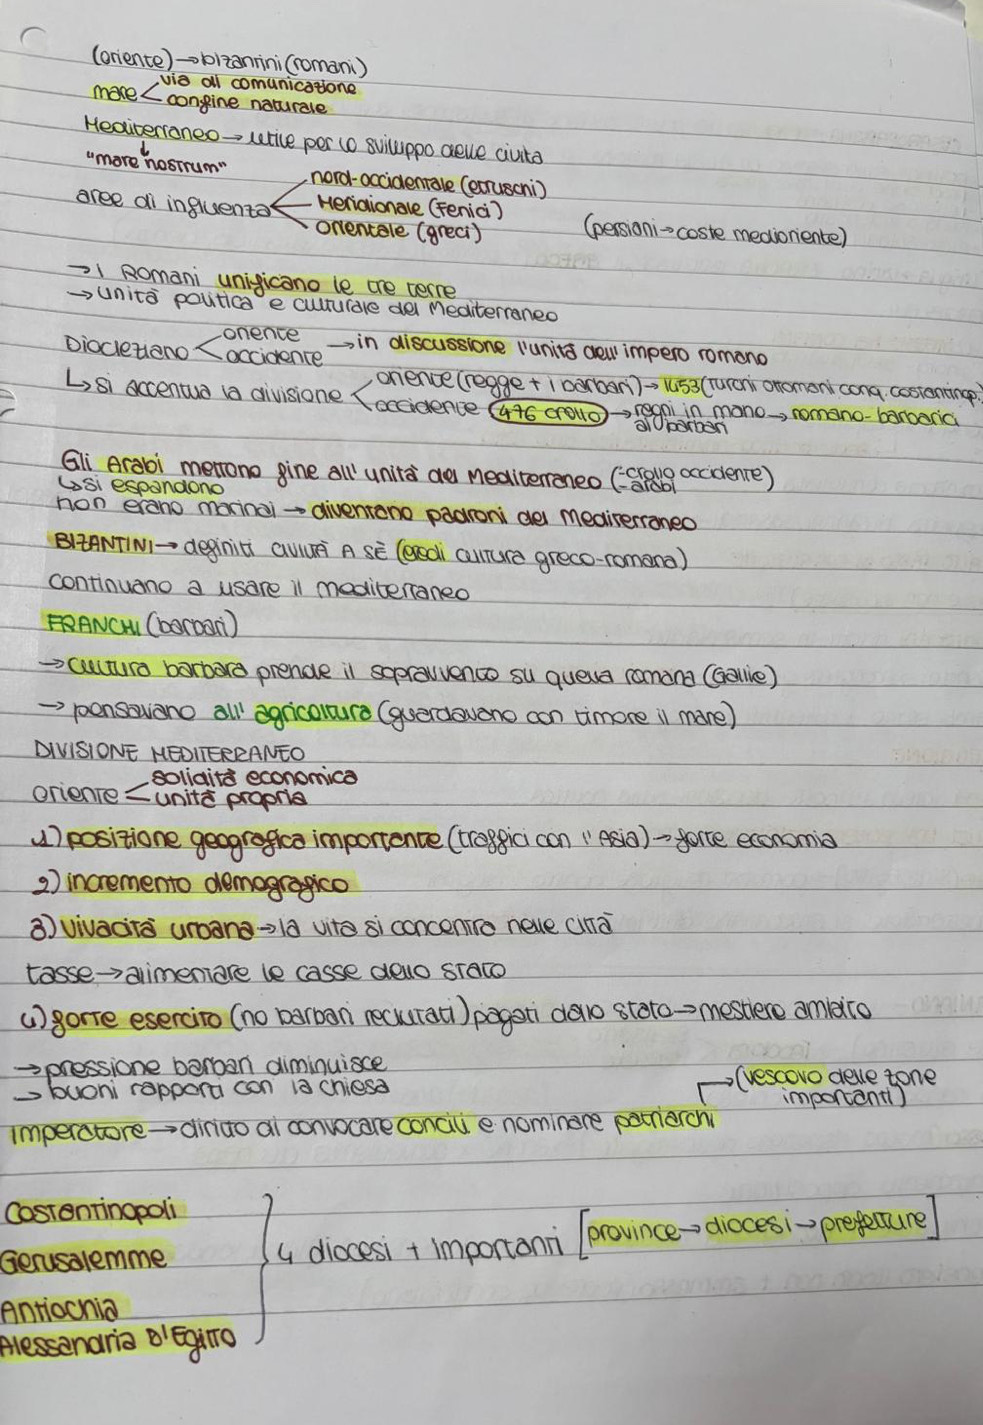 (oriente) → bizantini (romani)
mare < via di comunicazione
confine naturale
Mediterraneo → utile per lo sviluppo delle civiltà
↓
"mare nostrum"
aree di influenza < nord-occidentale (etruschi)
Meridionale (Fenici)
Orientale (greci) (persiani → coste medioriente)
→ I Romani unificano le tre terre
→ unità politica e culturale del Mediterraneo
Diocleziano < oriente
occidente → in discussione l'unità dell'impero romano
↳ si accentua la divisione < oriente (regge + i barbari) → 1453 (Turchi ottomani conq. costantinop.)
occidente 476 crollo → regni in mano ai barbari → romano-barbarici
Gli Arabi mettono fine all'unità del Mediterraneo (-crollo occidente)
-arabi
↳ si espandono
non erano marinai → diventano padroni del Mediterraneo
BIZANTINI → definiti civiltà A SÈ (eredi cultura greco-romana)
continuano a usare il mediterraneo
FRANCHI (barbari)
→ cultura barbara prende il sopravvento su quella romana (Gallie)
→ pensavano all'agricoltura (guardavano con timore il mare)
DIVISIONE MEDITERRANEO
oriente < solidità economica
unità propria
1) posizione geografica importante (traffici con l'Asia) → forte economia
2) incremento demografico
3) vivacità urbana → la vita si concentra nelle città
tasse → alimentare le casse dello stato
4) forte esercito (no barbari reclutati) pagati dallo stato → mestiere ambito
→ pressione barbari diminuisce
→ buoni rapporti con la chiesa
→ (vescovo delle zone
importanti)
imperatore → diritto di convocare concili e nominare patriarchi
Costantinopoli
Gerusalemme
Antiochia
Alessandria D'Egitto
4 diocesi + importanti [province → diocesi → prefetture]